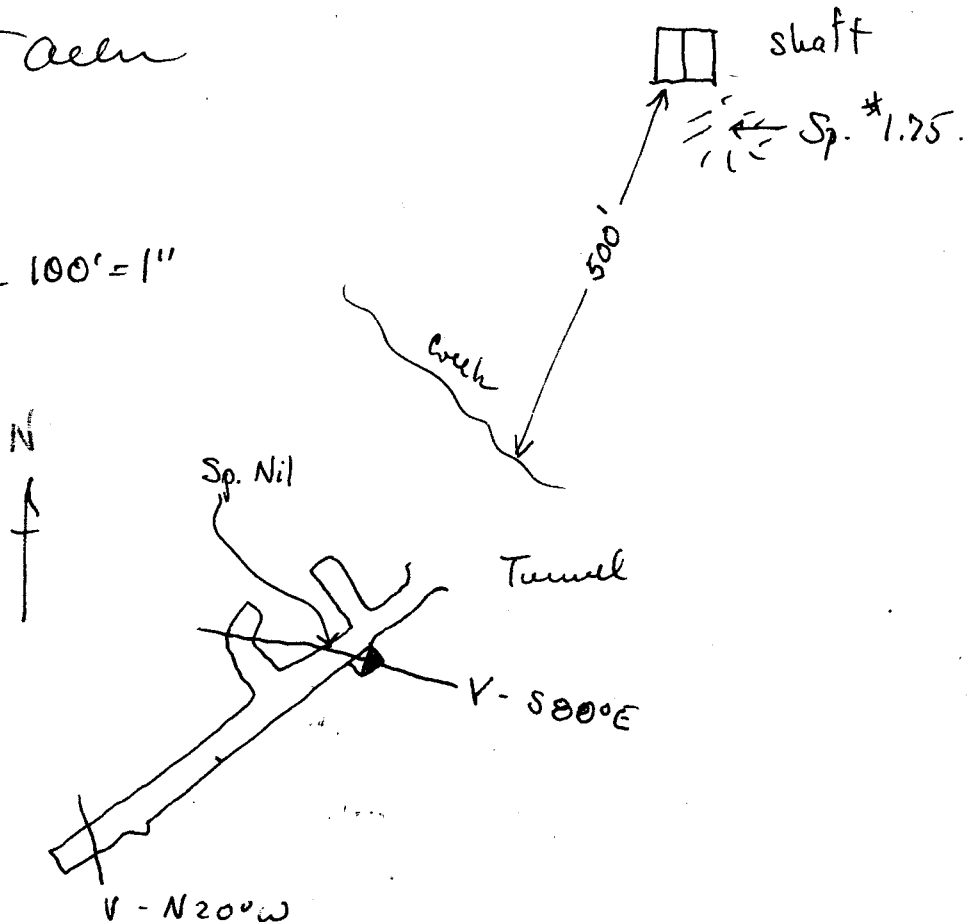 shaft
Sp. #1.75.
500'
100' = 1"
Creek
N
Sp. Nil
Tunnel
V - S80°E
V - N20°W